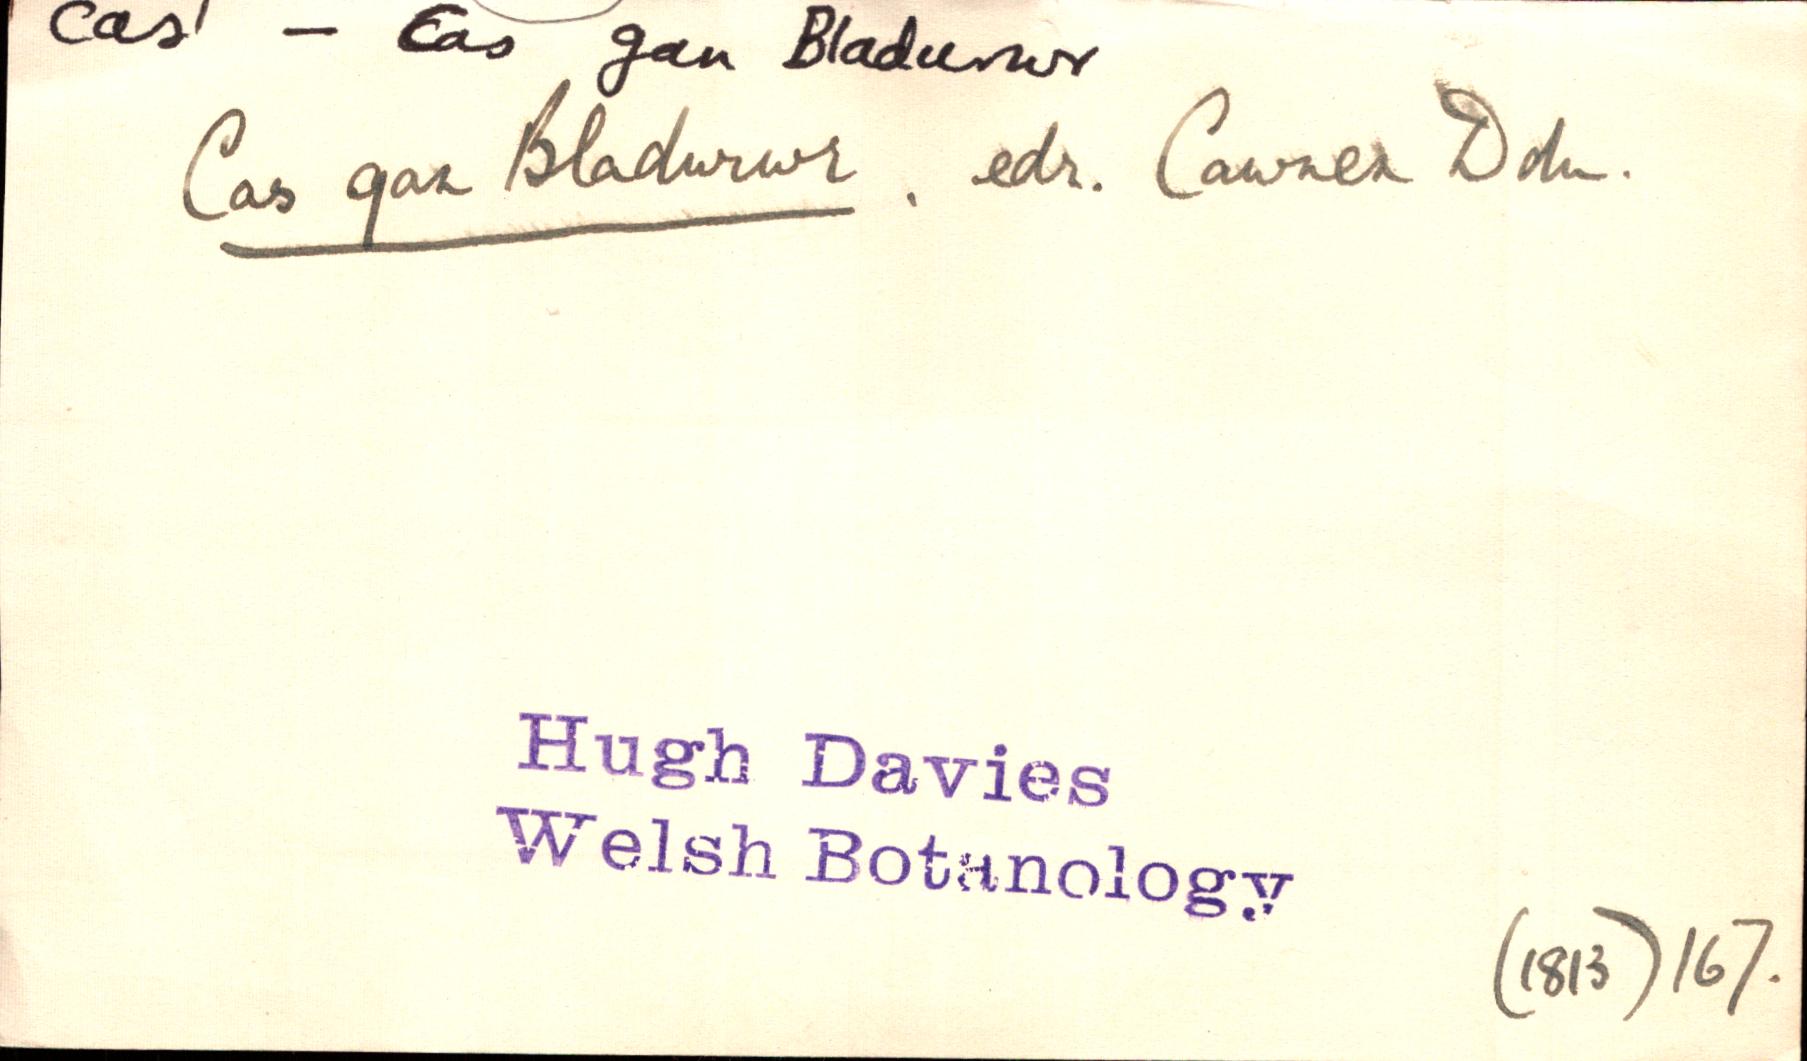 cas¹ – Cas gan Bladurwr
Cas gan Bladurwr. edr. Cawnen Ddu.
Hugh Davies
Welsh Botanology
(1813) 167.